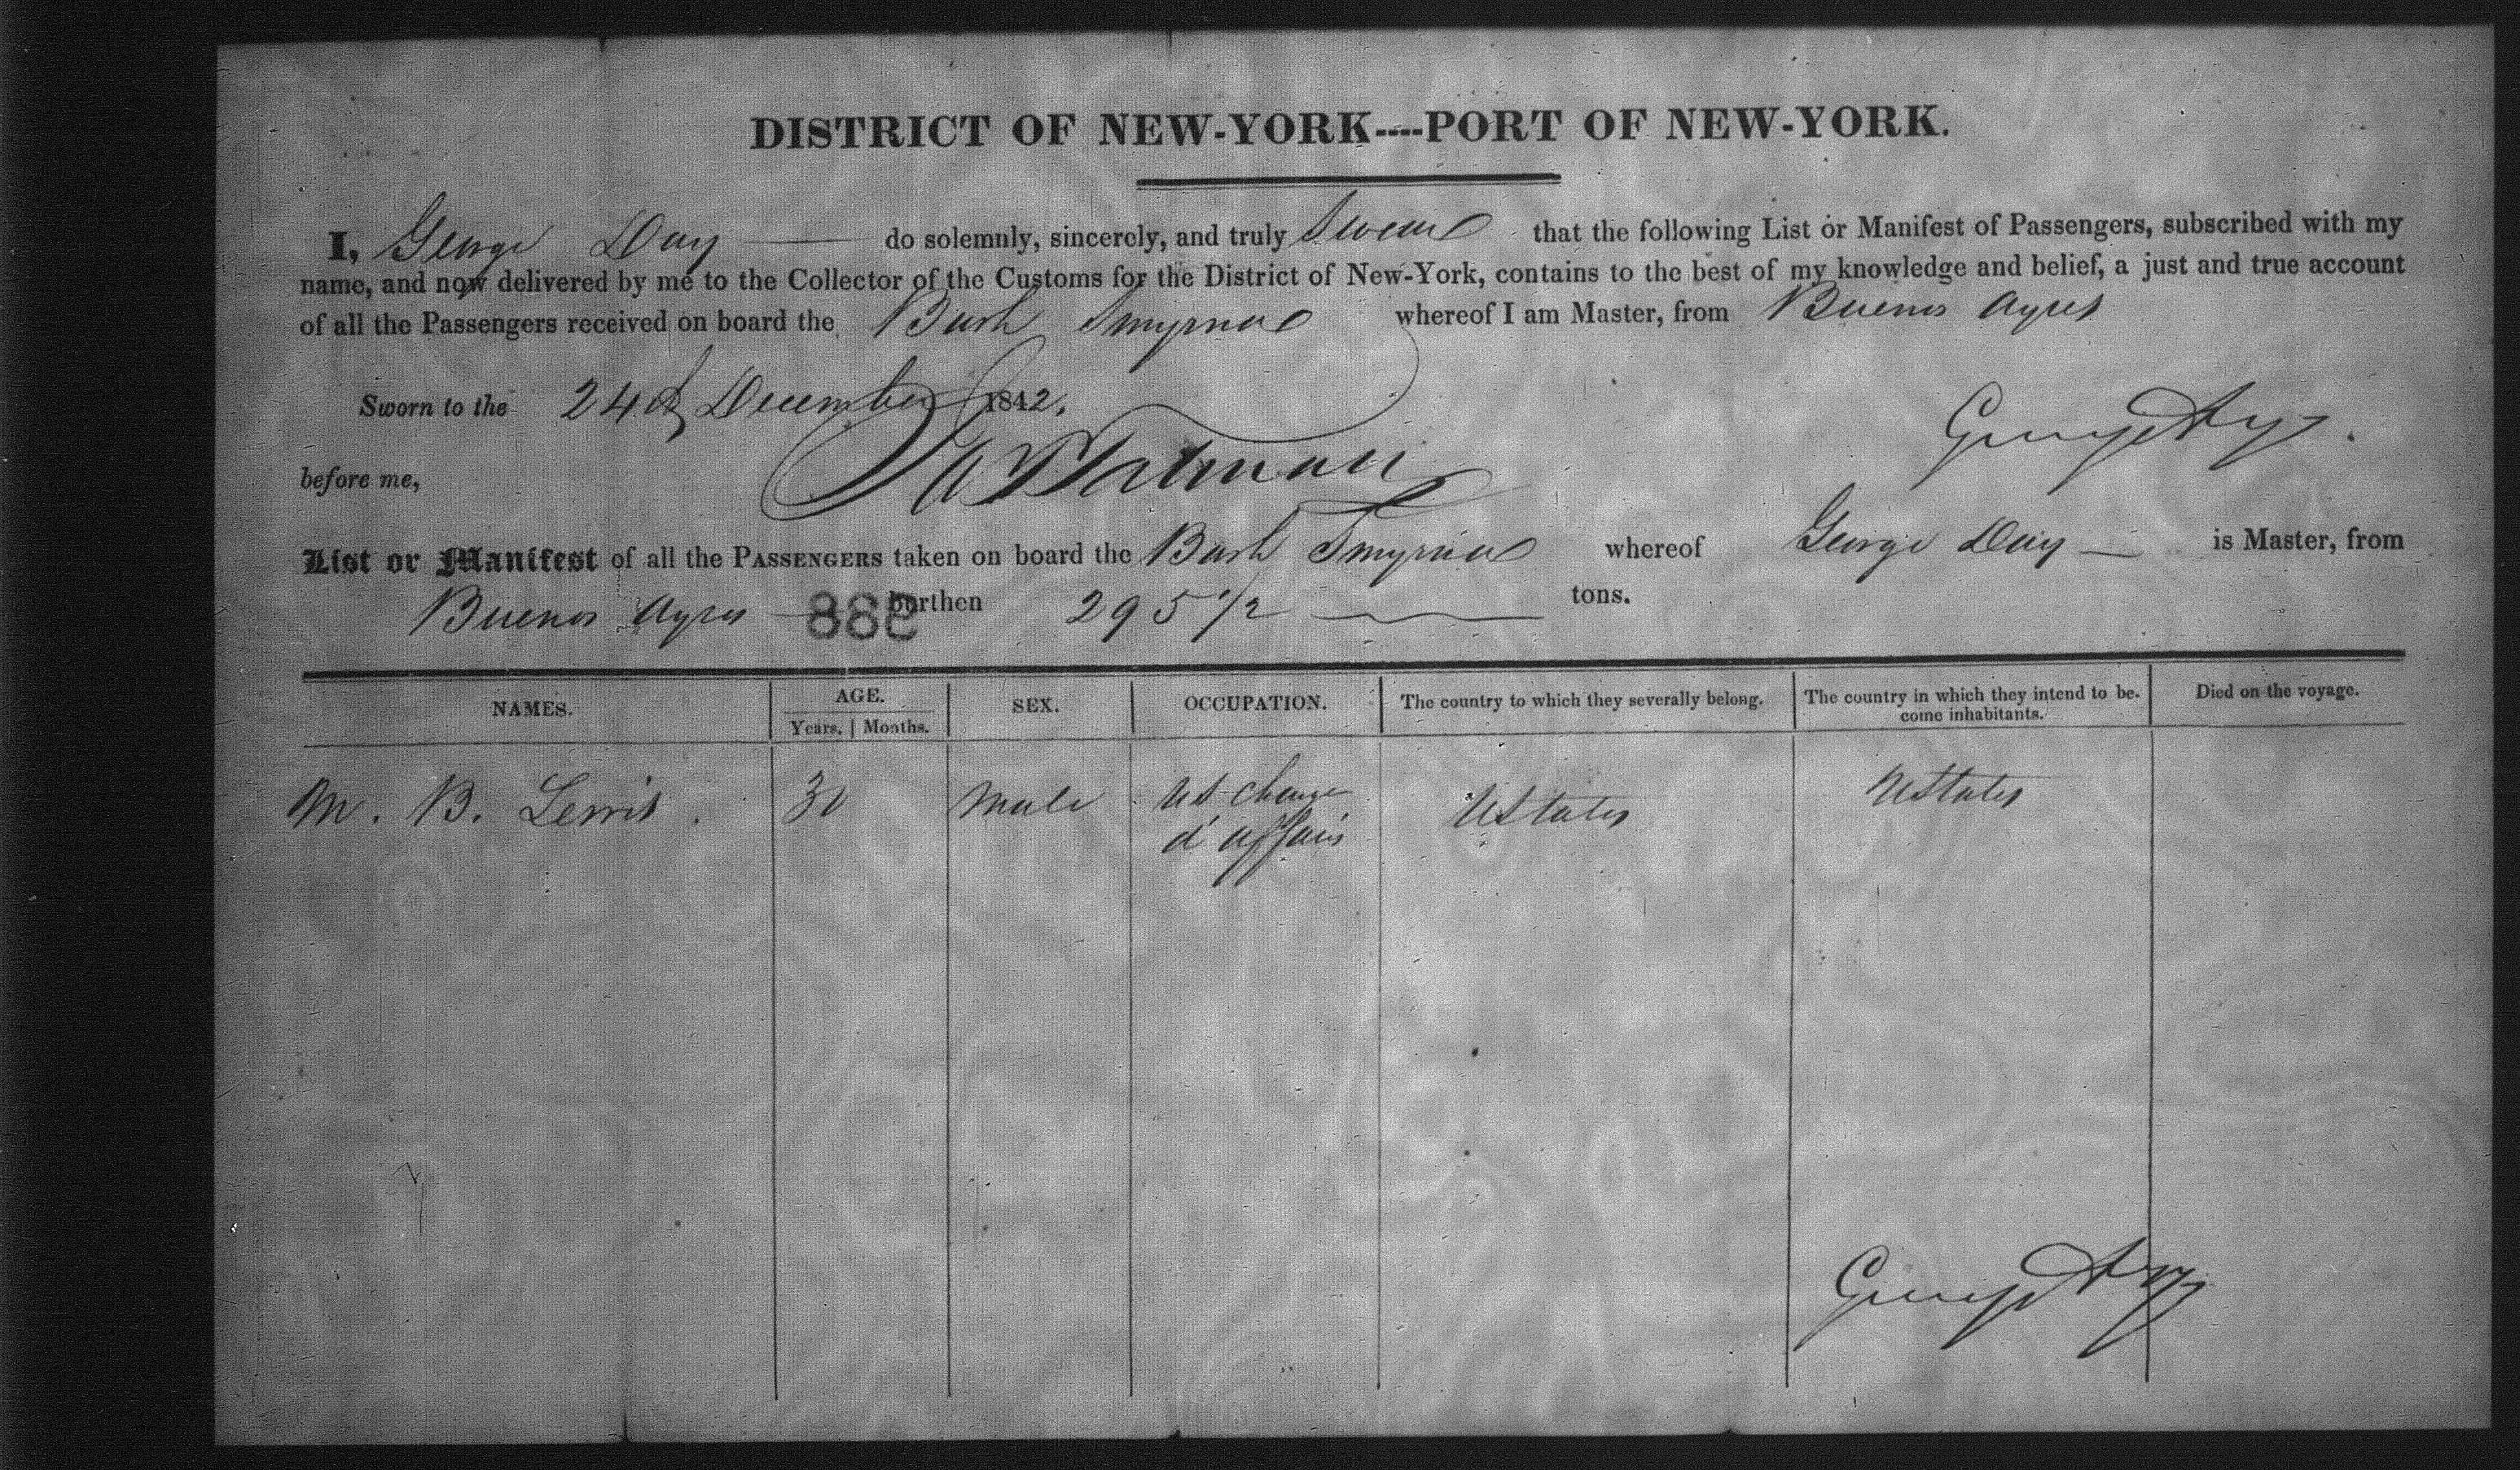 DISTRICT OF NEW-YORK----PORT OF NEW-YORK.
I, George Day do solemnly, sincerely, and truly Swear that the following List or Manifest of Passengers, subscribed with my
name, and now delivered by me to the Collector of the Customs for the District of New-York, contains to the best of my knowledge and belief, a just and true account
of all the Passengers received on board the Bark Smyrna whereof I am Master, from Buenos Ayres
Sworn to the 24 of December 1842.
George Day.
before me,
List or Manifest of all the PASSENGERS taken on board the Bark Smyrna whereof George Day is Master, from
Buenos Ayres 888 burthen 295 1/2 tons.
NAMES. AGE. SEX. OCCUPATION. The country to which they severally belong. The country in which they intend to be- Died on the voyage.
Years. Months. come inhabitants.
M. B. Lewis. 30 Male US charge UStates UStates
d'affair
George Day